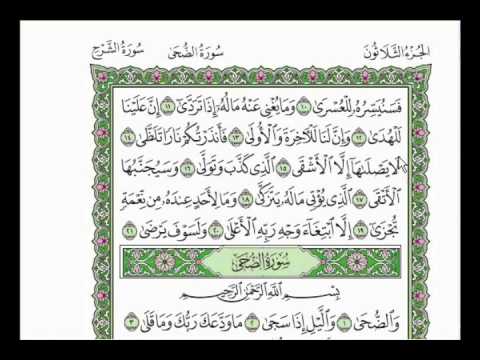 الجزء الثلاثون سورة الضحى سورة الشرح
فَسَنُيَسِّرُهُۥ لِلْعُسْرَىٰ ١٠ وَمَا يُغْنِى عَنْهُ مَالُهُۥٓ إِذَا تَرَدَّىٰٓ ١١ إِنَّ عَلَيْنَا
لَلْهُدَىٰ ١٢ وَإِنَّ لَنَا لَلْـَٔاخِرَةَ وَٱلْأُولَىٰ ١٣ فَأَنذَرْتُكُمْ نَارًا تَلَظَّىٰ ١٤
لَا يَصْلَىٰهَآ إِلَّا ٱلْأَشْقَى ١٥ ٱلَّذِى كَذَّبَ وَتَوَلَّىٰ ١٦ وَسَيُجَنَّبُهَا
ٱلْأَتْقَى ١٧ ٱلَّذِى يُؤْتِى مَالَهُۥ يَتَزَكَّىٰ ١٨ وَمَا لِأَحَدٍ عِندَهُۥ مِن نِّعْمَةٍ
تُجْزَىٰٓ ١٩ إِلَّا ٱبْتِغَآءَ وَجْهِ رَبِّهِ ٱلْأَعْلَىٰ ٢٠ وَلَسَوْفَ يَرْضَىٰ ٢١
سورة الضحى
بِسْمِ ٱللَّهِ ٱلرَّحْمَٰنِ ٱلرَّحِيمِ
وَٱلضُّحَىٰ ١ وَٱلَّيْلِ إِذَا سَجَىٰ ٢ مَا وَدَّعَكَ رَبُّكَ وَمَا قَلَىٰ ٣